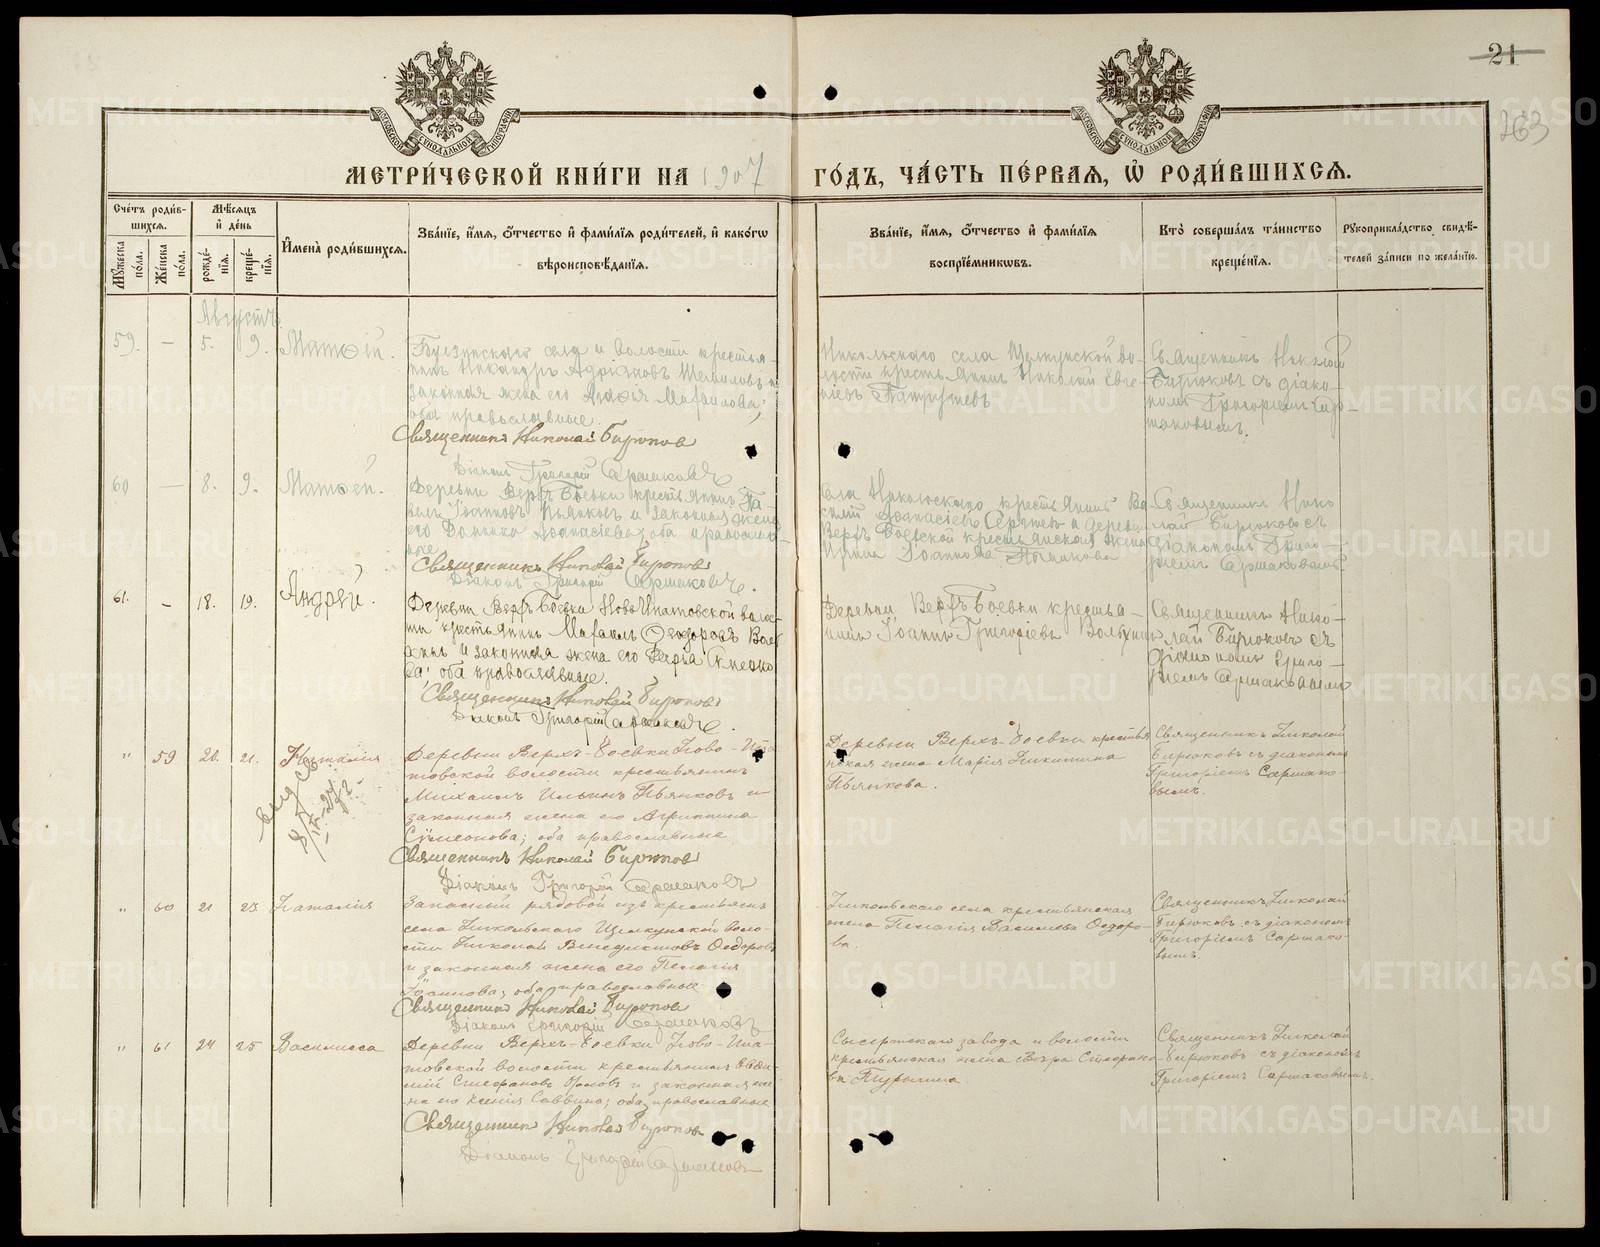 21
263
МОСКОВСКОЙ СѴНОДАЛЬНОЙ ТИПОГРАФІИ
МОСКОВСКОЙ СѴНОДАЛЬНОЙ ТИПОГРАФІИ
МЕТРИ́ЧЕСКОЙ КНИ́ГИ НА 1907 ГО́ДЪ, ЧА́СТЬ ПЕ́РВАЯ, Ѡ҆ РОДИ́ВШИХСЯ.
Сче́тъ роди́в-
шихся.
Мꙋ́жеска по́ла.
Же́нска по́ла.
Мѣ́сяцъ
и҆ де́нь
рожде́-
нїя.
креще́-
нїя.
И҆мена̀ роди́вшихся.
Зва́нїе, и҆́мя, ѻ҆́тчество и҆ фами́лїя роди́телей, и҆ како́гѡ
вѣроисповѣ́данїя.
Зва́нїе, и҆́мя, ѻ҆́тчество и҆ фами́лїя
воспрїе́мникѡвъ.
Кто̀ соверша́лъ та́инство
креще́нїя.
Рꙋкоприкла́дство свидѣ́-
телей за́писи по жела́нїю.
Августъ
59. — 5. 9. Матѳій.
села и волости крестья-
нинъ Никандръ Адріановъ и
законная жена его Михаилова;
оба православные.
Священникъ Николай Бирюковъ
Діаконъ Григорій Саршаковъ
Никольскаго села Щелкунской во-
лости крестьянинъ Николай Евге-
ніевъ Патрушевъ
Священникъ Николай
Бирюковъ съ діако-
номъ Григоріемъ Сар-
шаковымъ.
60 — 8. 9. Матѳей.
Деревни Верхъ-Боевки крестьянинъ Па-
велъ Іоанновъ Пьянковъ и законная жена
его Домника Аѳанасіева; оба православ-
ные
Священникъ Николай Бирюковъ
Діаконъ Григорій Саршаковъ.
Села Никольскаго крестьянинъ Ва-
силій Аѳанасіевъ и деревни
Верхъ Боевской крестьянская жена
Іоаннова Пьянкова
Священникъ Нико-
лай Бирюковъ съ
діакономъ Григо-
ріемъ Саршаковымъ
61. — 18. 19. Андрей.
Деревни Верхъ Боевки Ново-Ипатовской воло-
сти крестьянинъ Михаилъ Ѳеодоровъ Вол-
хинъ и законная жена его Марія
ва; оба православные.
Священникъ Николай Бирюковъ
Діаконъ Григорій Саршаковъ.
Деревни Верхъ-Боевки крестья-
нинъ Іоаннъ Григоріевъ Волхинъ
Священникъ Нико-
лай Бирюковъ съ
діакономъ Григо-
ріемъ Саршаковымъ
" 59 20. 21. Наталія
Деревни Верхъ-Боевки Ново-Ипа-
товской волости крестьянинъ
Михаилъ Ильинъ Пьянковъ и
законная жена его Агриппина
Сѵмеонова; оба православные
Священникъ Николай Бирюковъ
Діаконъ Григорій Саршаковъ
Деревни Верхъ-Боевки крестьян-
ская жена Марія Никитина
Пьянкова.
Священникъ Николай
Бирюковъ съ діакономъ
Григоріемъ Саршако-
вымъ.
" 60 21 23 Наталія
Запасный рядовой изъ крестьянъ
села Никольскаго Щелкунской воло-
сти Николай Венедиктовъ Ѳедоровъ
и законная жена его Пелагія
Іоаннова; оба православные
Священникъ Николай Бирюковъ
Діаконъ Григорій Саршаковъ
Никольскаго села крестьянская
жена Пелагія Васильева Ѳедоро-
ва.
Священникъ Николай
Бирюковъ съ діакономъ
Григоріемъ Саршако-
вымъ.
" 61 24 25 Василисса
Деревни Верхъ-Боевки Ново-Ипа-
товской волости крестьянинъ
Стефановъ и законная же-
на его Ксенія Саввина; оба православные
Священникъ Николай Бирюковъ
Діаконъ Григорій Саршаковъ
Сысертскаго завода и волости
крестьянская жена Вѣра
ва
Священникъ Николай
Бирюковъ съ діакономъ
Григоріемъ Саршаковымъ.
METRIKI.GASO-URAL.RU